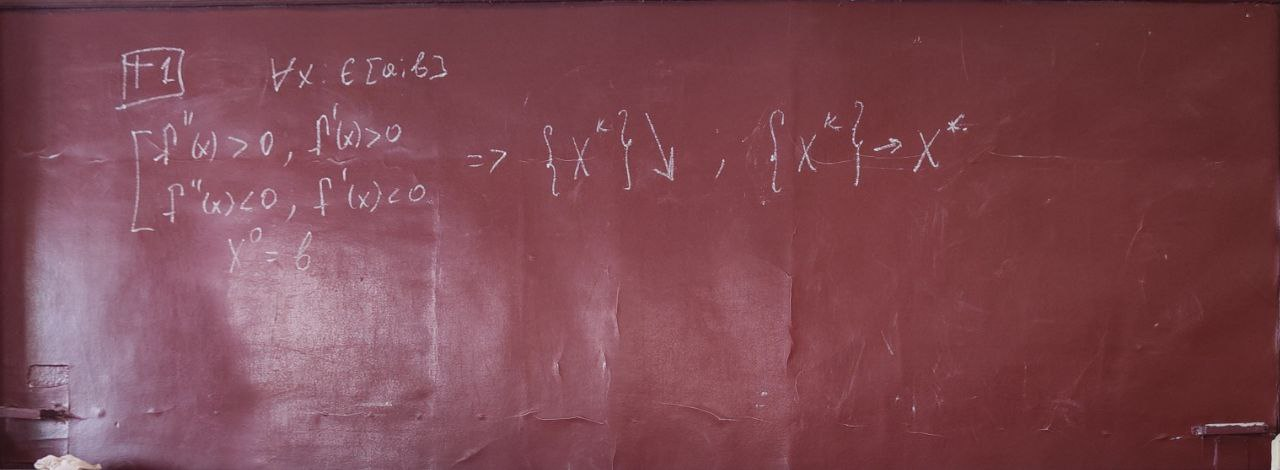 T1 ∀x ∈ [a;b]
f''(x) > 0, f'(x) > 0
f''(x) < 0, f'(x) < 0
=> {X^k} ↘, {X^k} → X*
X^0 = b